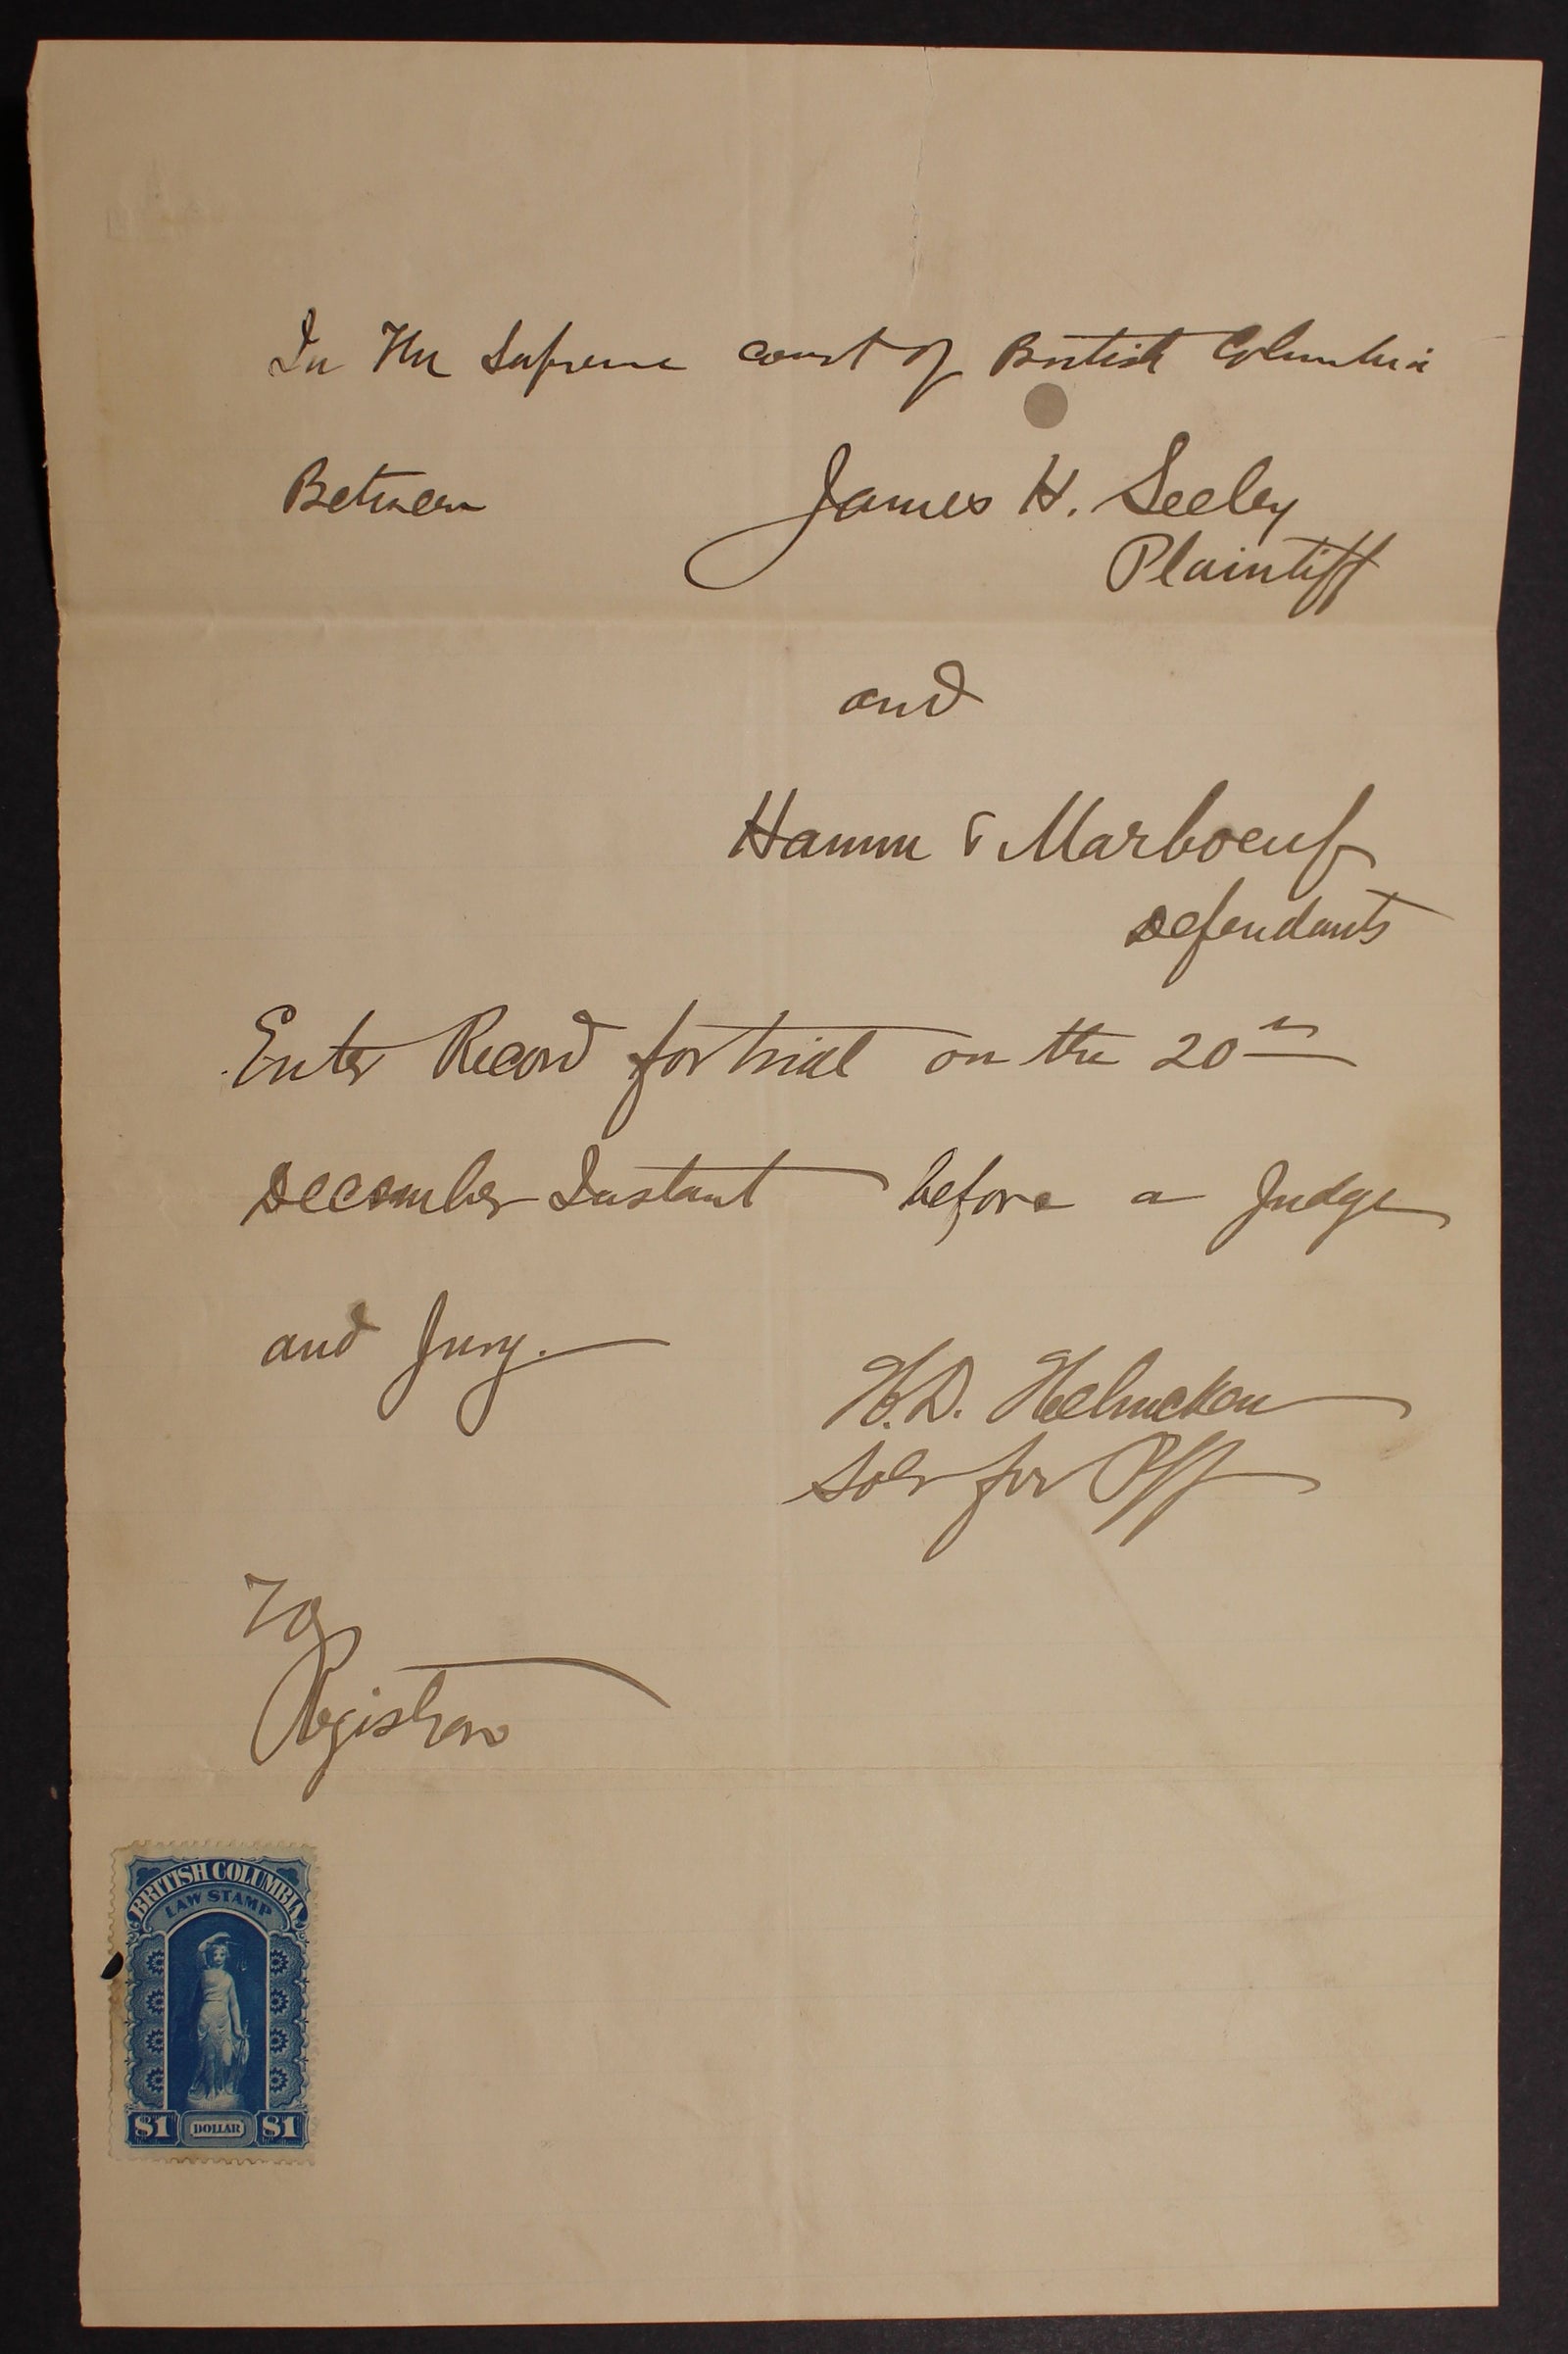 In The Supreme court of British Columbia
Between James H. Seeley
Plaintiff
and
Hamm & Marboeuf
Defendants
Enter Record for trial on the 20th
December Instant before a Judge
and Jury.
H.D. Helmcken
Solr for Plff
To
Registrar
BRITISH COLUMBIA
LAW STAMP
$1 DOLLAR $1